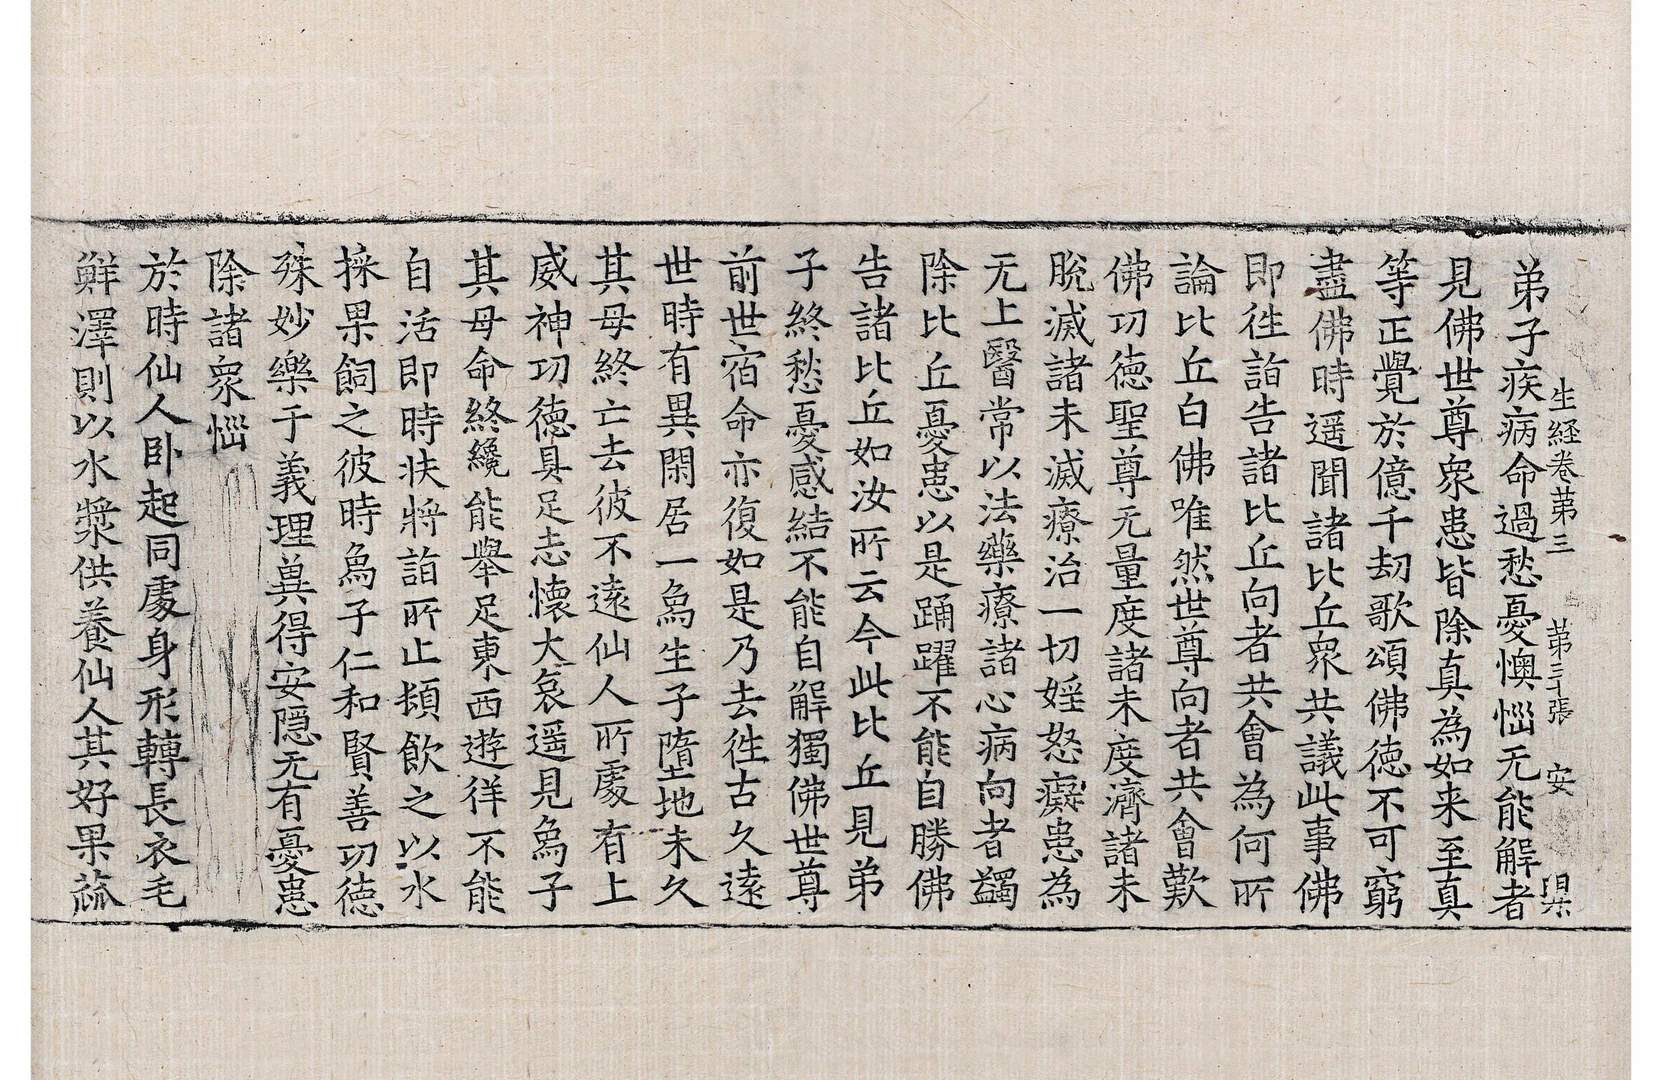 生経卷第三　第三十張　安
弟子疾病命過愁憂懊惱无能解者
見佛世尊衆患皆除真為如来至真
等正覺於億千刼歌頌佛徳不可窮
盡佛時遥聞諸比丘衆共議此事佛
即徃詣告諸比丘向者共會為何所
論比丘白佛唯然世尊向者共會歎
佛㓛徳聖尊无量度諸未度濟諸未
脫滅諸未滅療治一切婬怒癡患為
无上醫常以法藥療諸心病向者蠲
除比丘憂患以是踊躍不能自勝佛
告諸比丘如汝所云今此比丘見弟
子終愁憂感結不能自解獨佛世尊
前世宿命亦復如是乃去徃古久逺
世時有異閑居一為生子墮地未久
其母終亡去彼不逺仙人所處有上
威神㓛徳具足志懷大哀遥見為子
其母命終纔能舉足東西遊徉不能
自活即時扶將詣所止頻飲之以水
採果飼之彼時為子仁和賢善㓛徳
殊妙樂于義理兾得安隠无有憂患
除諸衆惱
於時仙人卧起同處身形轉長衣毛
鮮澤則以水漿供養仙人其好果蓏